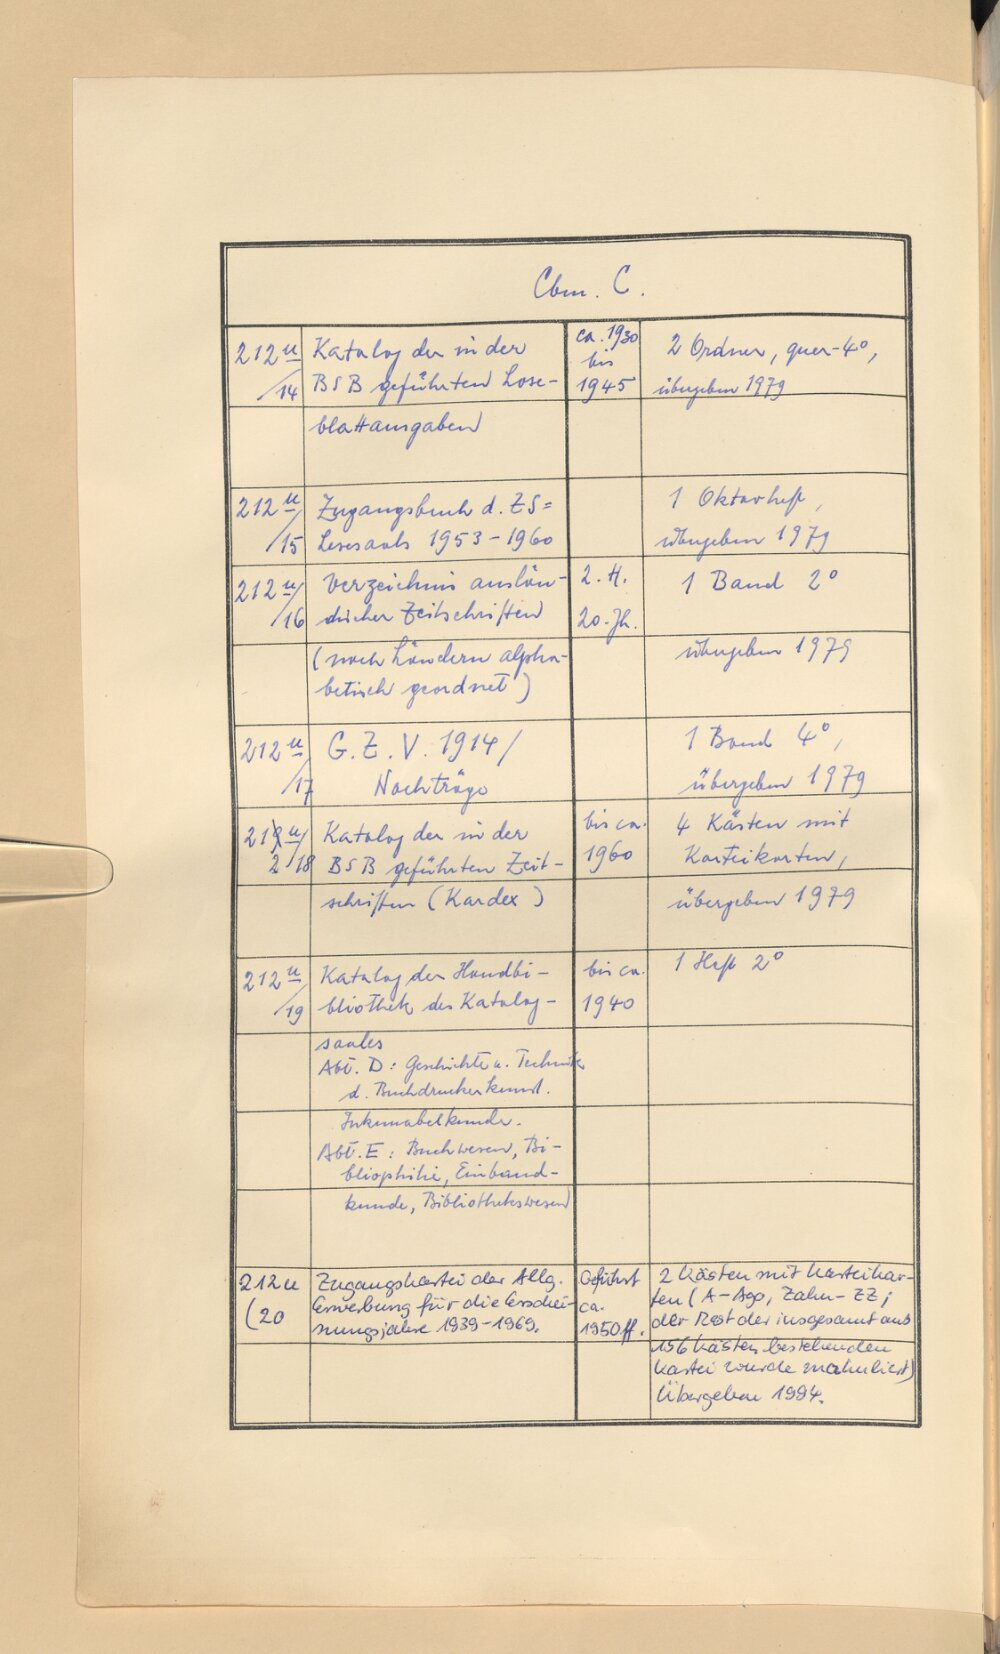 Cbm. C.
212 u/14 Katalog der in der ca. 1930 2 Ordner, quer-4°,
BSB geführten Lose- bis 1945 übergeben 1979
blattausgaben
212 u/15 Zugangsbuch d. ZS= 1 Oktavheft,
Lesesaals 1953-1960 übergeben 1979
212 u/16 Verzeichnis auslän- 2. H. 1 Band 2°
discher Zeitschriften 20. Jh.
(nach Ländern alpha- übergeben 1979
betisch geordnet)
212 u/17 G. Z. V. 1914/ 1 Band 4°,
Nachträge übergeben 1979
212 u/18 Katalog der in der bis ca. 4 Kästen mit
BSB geführten Zeit- 1960 Karteikarten,
schriften (Kardex) übergeben 1979
212 u/19 Katalog der Handbi- bis ca. 1 Heft 2°
bliothek des Katalog- 1940
saales
Abt. D: Geschichte u. Technik
d. Buchdruckerkunst.
Inkunabelkunde.
Abt. E: Buchwesen, Bi-
bliophilie, Einband-
kunde, Bibliothekswesen
212 u Zugangskartei der Allg. Geführt 2 Kästen mit Karteikar-
(20 Erwerbung für die Erschei- ca. ten (A-Ago, Zahn-ZZ;
nungsjahre 1939-1969. 1950 ff. der Rest der insgesamt aus
156 Kästen bestehenden
Kartei wurde makuliert)
Übergeben 1994.